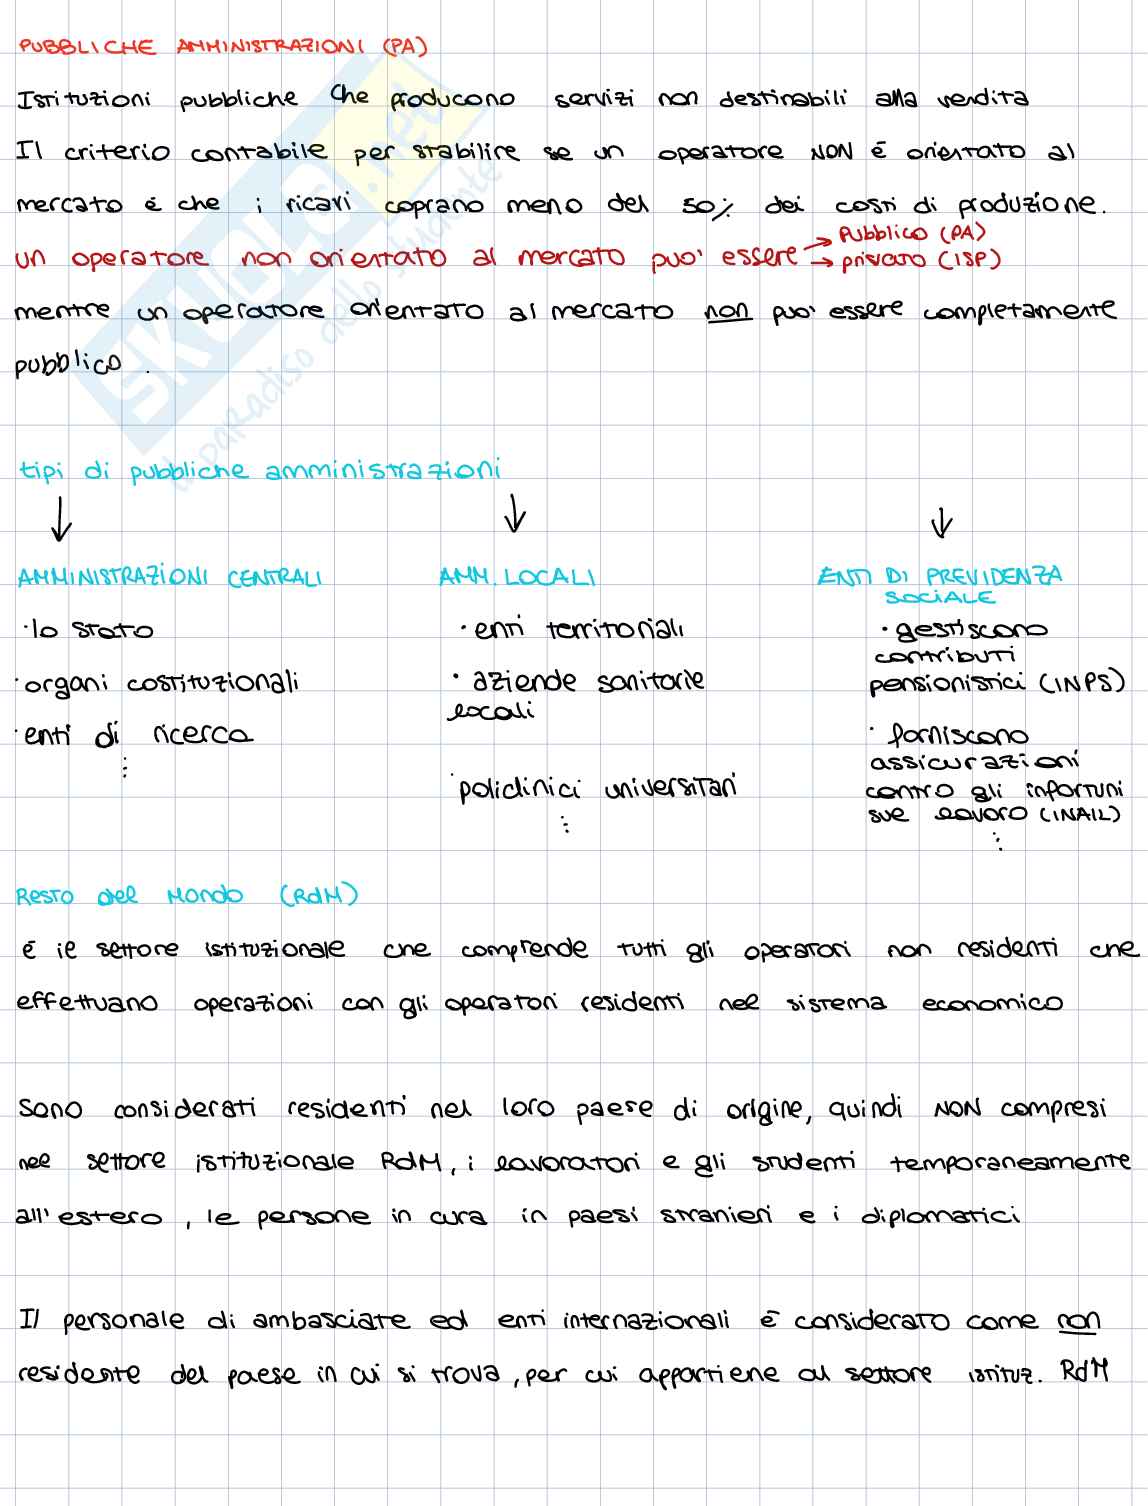 PUBBLICHE AMMINISTRAZIONI (PA)
Istituzioni pubbliche che producono servizi non destinabili alla vendita
Il criterio contabile per stabilire se un operatore NON è orientato al
mercato è che i ricavi coprano meno del 50% dei costi di produzione.
un operatore non orientato al mercato puo' essere → Pubblico (PA)
→ privato (ISP)
mentre un operatore orientato al mercato non puo' essere completamente
pubblico.
SKUOLA.net
il paradiso dello studente
tipi di pubbliche amministrazioni
↓ ↓ ↓
AMMINISTRAZIONI CENTRALI
· lo stato
· organi costituzionali
· enti di ricerca
⋮
AMM. LOCALI
· enti territoriali
· aziende sanitarie
locali
· policlinici universitari
⋮
ENTI DI PREVIDENZA
SOCIALE
· gestiscono
contributi
pensionistici (INPS)
· forniscono
assicurazioni
contro gli infortuni
sul lavoro (INAIL)
⋮
Resto del Mondo (RdM)
è il settore istituzionale che comprende tutti gli operatori non residenti che
effettuano operazioni con gli operatori residenti nel sistema economico
Sono considerati residenti nel loro paese di origine, quindi NON compresi
nel settore istituzionale RdM, i lavoratori e gli studenti temporaneamente
all'estero, le persone in cura in paesi stranieri e i diplomatici
Il personale di ambasciate ed enti internazionali è considerato come non
residente del paese in cui si trova, per cui appartiene al settore istituz. RdM